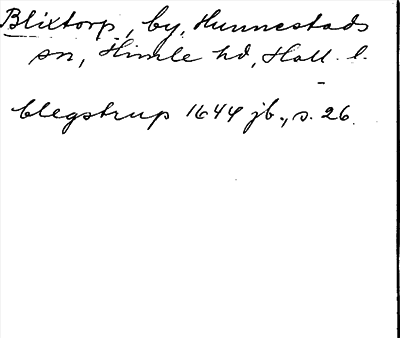 Blixtorp, by, Hunnestads
sn, Himle hd, Hall. l.
blegstrup 1644 jb., s. 26.